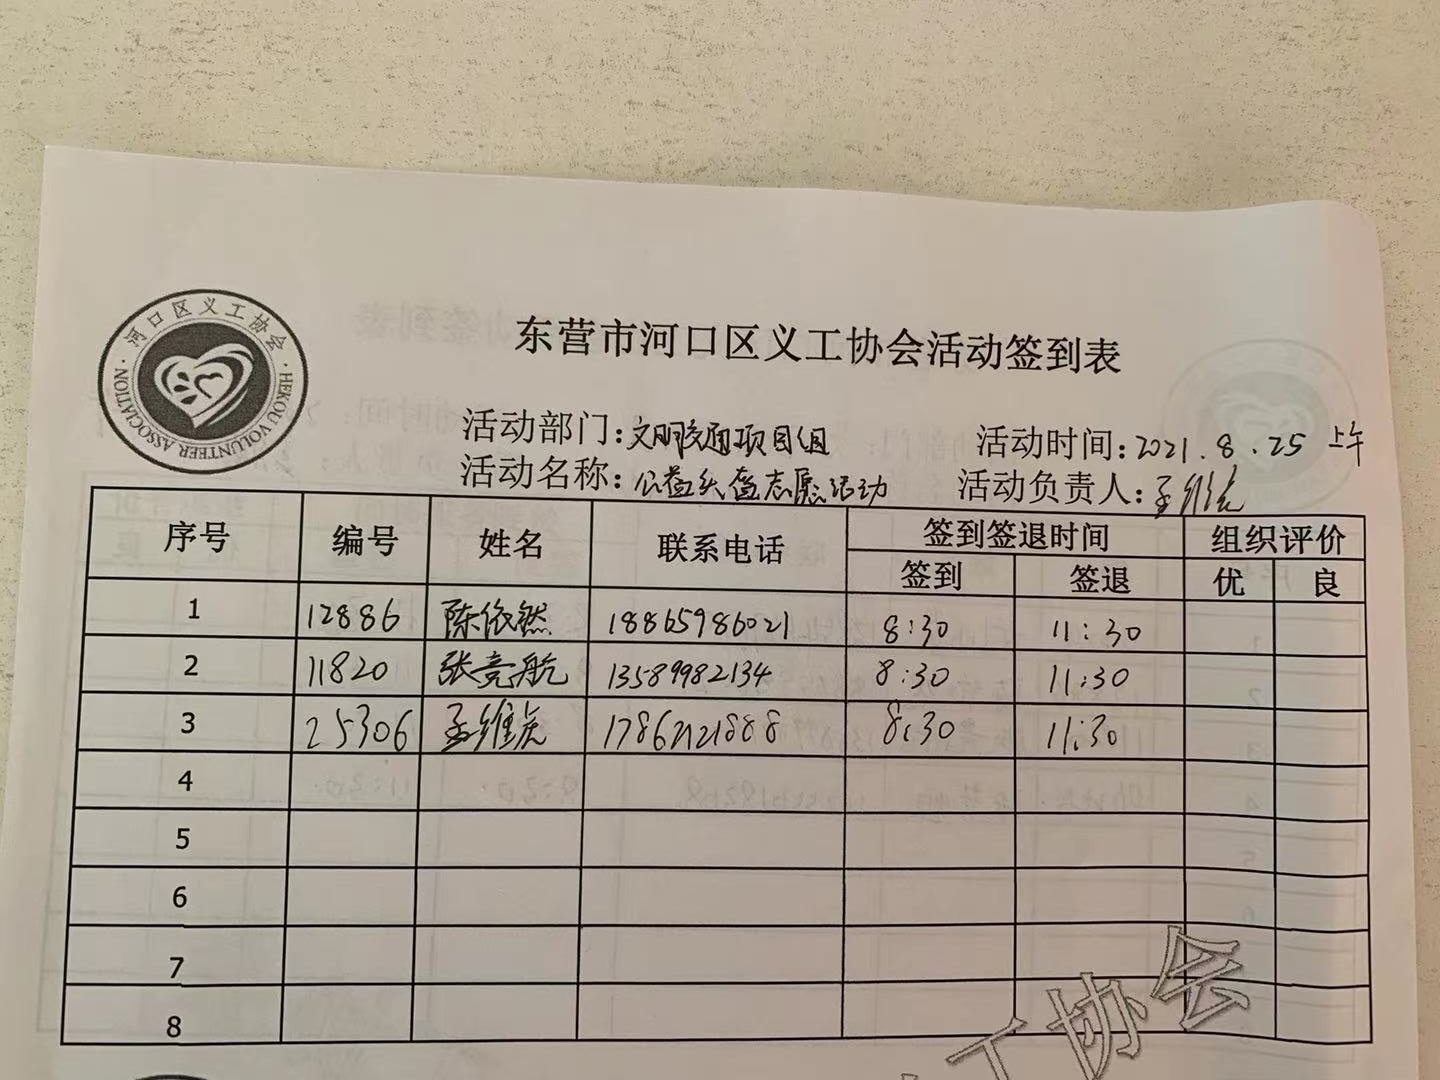 河口区义工协会
HEKOU VOLUNTEER ASSOCIATION
东营市河口区义工协会活动签到表
活动部门:文明交通项目组 活动时间:2021.8.25 上午
活动名称:公益头盔志愿活动 活动负责人:孟维
序号 编号 姓名 联系电话 签到签退时间 组织评价
签到 签退 优 良
1 12886 陈依然 18865986021 8:30 11:30
2 11820 张亮航 13589982134 8:30 11:30
3 25306 孟维 17862121888 8:30 11:30
4
5
6
7
8
工协会